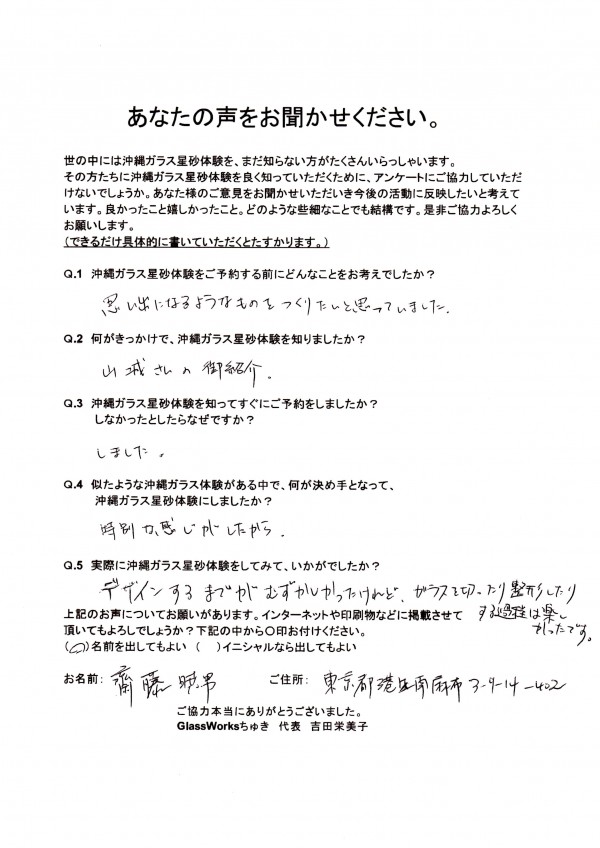 あなたの声をお聞かせください。
世の中には沖縄ガラス星砂体験を、まだ知らない方がたくさんいらっしゃいます。
その方たちに沖縄ガラス星砂体験を良く知っていただくために、アンケートにご協力していただ
けないでしょうか。あなた様のご意見をお聞かせいただいき今後の活動に反映したいと考えて
います。良かったこと嬉しかったこと。どのような些細なことでも結構です。是非ご協力よろしく
お願いします。
(できるだけ具体的に書いていただくとたすかります。)
Q.1 沖縄ガラス星砂体験をご予約する前にどんなことをお考えでしたか?
思い出になるようなものをつくりたいと思っていました.
Q.2 何がきっかけで、沖縄ガラス星砂体験を知りましたか?
山城さんの御紹介。
Q.3 沖縄ガラス星砂体験を知ってすぐにご予約をしましたか?
しなかったとしたらなぜですか?
しました。
Q.4 似たような沖縄ガラス体験がある中で、何が決め手となって、
沖縄ガラス星砂体験にしましたか?
特別な感じがしたから.
Q.5 実際に沖縄ガラス星砂体験をしてみて、いかがでしたか?
デザインするまでがむずかしかったけれど、ガラスを切ったり整形したり
する過程は楽し
かったです。
上記のお声についてお願いがあります。インターネットや印刷物などに掲載させて
頂いてもよろしでしょうか?下記の中から〇印お付けください。
(〇)名前を出してもよい ( )イニシャルなら出してもよい
お名前: 齋藤 男 ご住所: 東京都港区南麻布3-9-14-402
ご協力本当にありがとうございました。
GlassWorksちゅき 代表 吉田栄美子